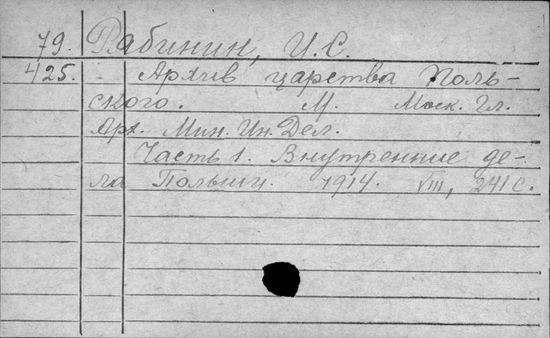 79. Рабинин, И.С.
425. - Архив царства Поль-
ского. М. Моск. Гл.
Арх. Мин. Ин. Дел.
Часть 1. Внутренние де-
ла Польши. 1914. VIII, 241 с.